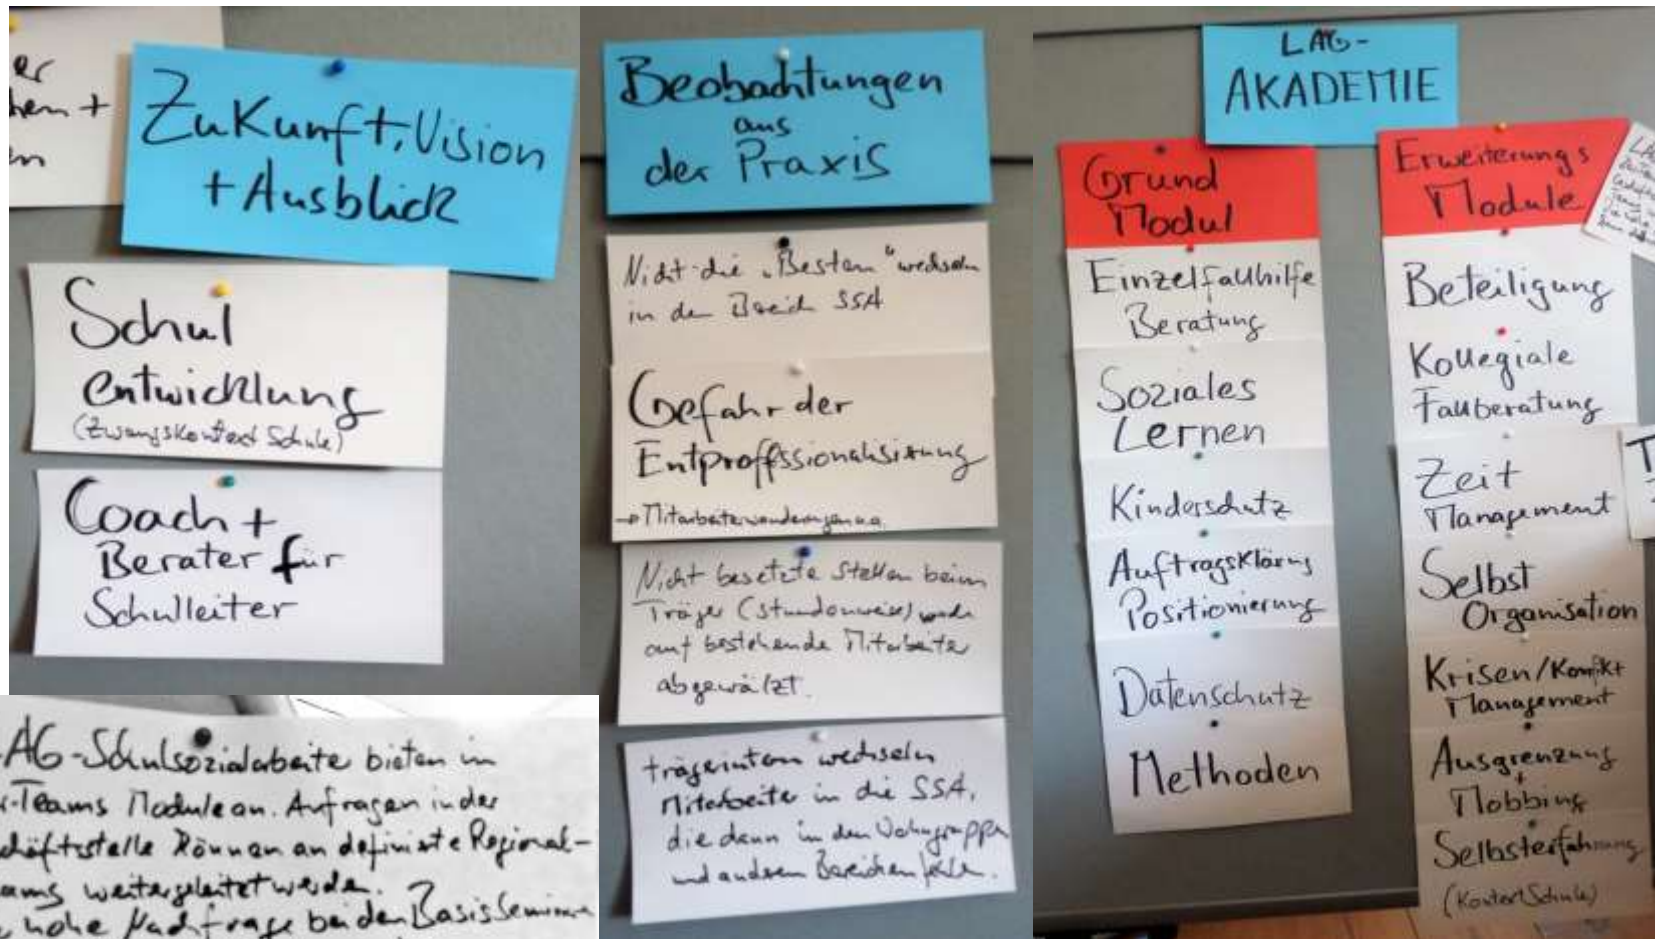 er
hen +
en
Zukunft, Vision
+ Ausblick
Schul
entwicklung
(Zwangskontext Schule)
Coach +
Berater für
Schulleiter
AG-Schulsozialarbeiter bieten in
Teams Module an. Anfragen in der
häftsstelle können an definierte Regional-
ams weitergeleitet werden.
hohe Nachfrage bei den BasisSeminare
Beobachtungen
aus
der Praxis
Nicht die „Besten“ wechseln
in den Bereich SSA
Gefahr der
Entproffssionalisirung
→ Mitarbeiterwanderungen u.a.
Nicht besetzte Stellen beim
Träger (stundenweise) werden
auf bestehende Mitarbeiter
abgewälzt.
trägerintern wechseln
Mitarbeiter in die SSA,
die dann in den Wohngruppen
und anderen Bereichen fehlen.
LAG-
AKADEMIE
Grund
Modul
Einzelfallhilfe
Beratung
Soziales
Lernen
Kinderschutz
Auftragsklärung
Positionierung
Datenschutz
Methoden
Erweiterungs
Module
Beteiligung
Kollegiale
Fallberatung
Zeit
Management
Selbst
Organisation
Krisen/Konflikt
Management
Ausgrenzung
+
Mobbing
Selbsterfahrung
(Kontext Schule)
LAG
T